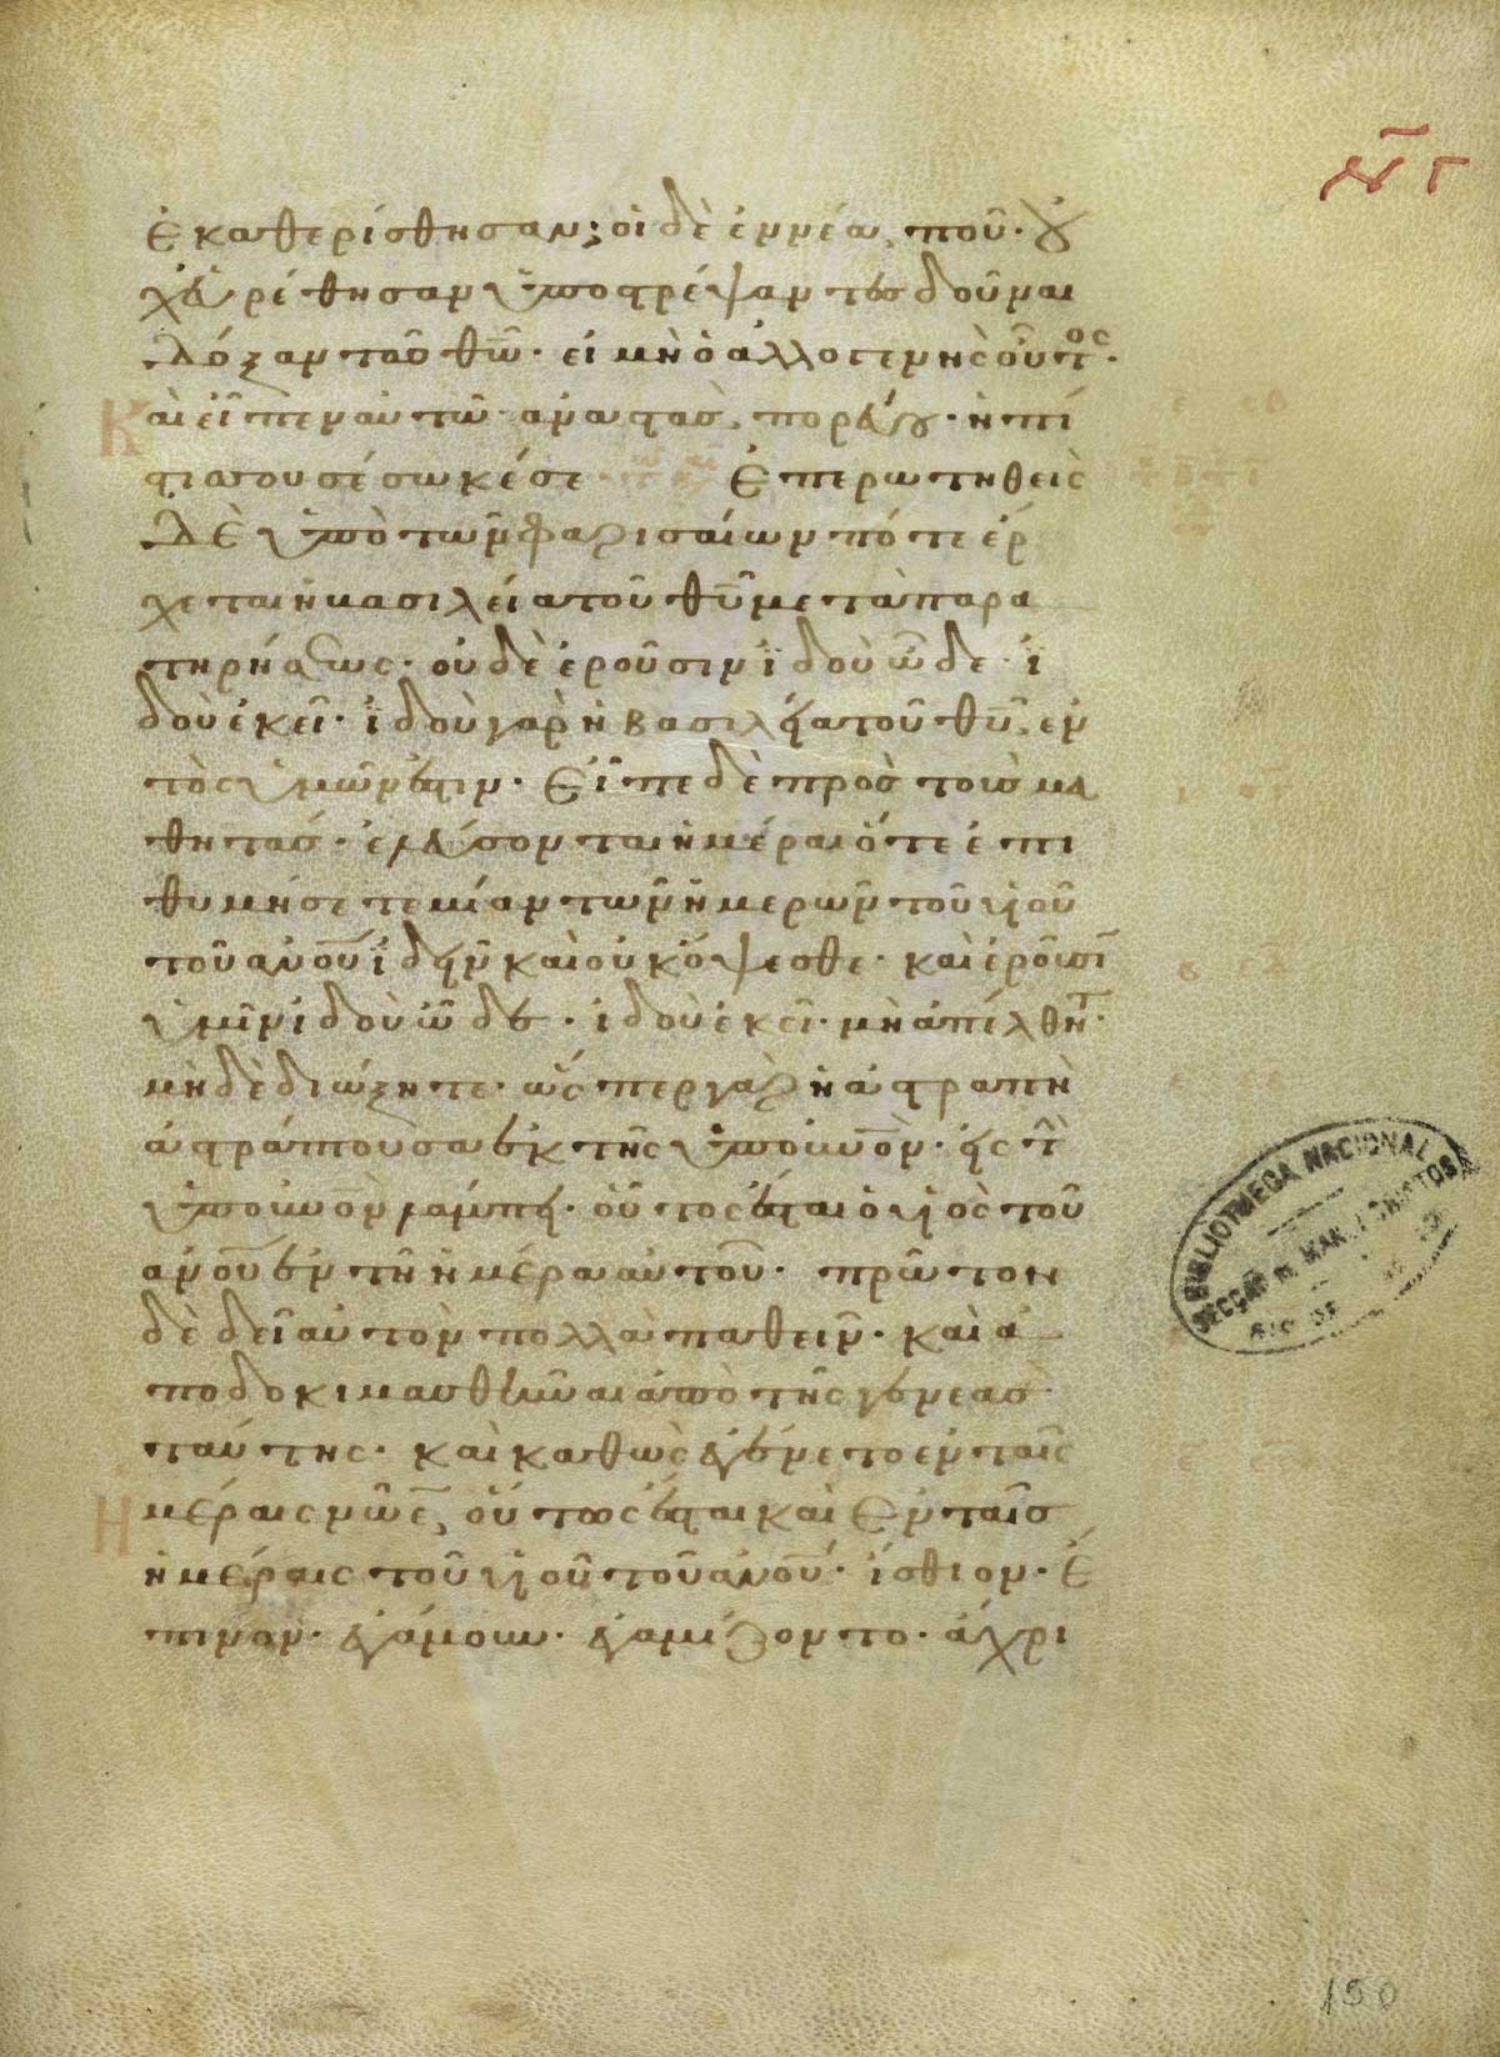 ἐκαθερίσθησαν; οἱ δὲ ἐννέα, ποῦ· οὐ
χ εὑρέθησαν ὑποστρέψαντες δοῦναι
δόξαν τῶ θῶ· εἰ μὴ ὁ ἀλλογενὴς οὗτος·
Καὶ εἶπεν αὐτῶ· ἀναστὰς, πορεύου· ἡ πί
στις σου σέσωκέ σε· Ἐπερωτηθεὶς
δὲ ὑπὸ τῶν φαρισαίων πότε ἔρ
χεται ἡ βασιλεία τοῦ θῦ μετὰ παρα
τηρήσεως· οὐδὲ ἐροῦσιν ἰδοὺ ὧδε· ἰ
δοὺ ἐκεῖ· ἰδοὺ γὰρ ἡ βασιλεία τοῦ θῦ, ἐν
τὸς ὑμῶν ἐστιν· Εἶπε δὲ πρὸς τοὺς μα
θητάς· ἐλεύσονται ἡμέραι ὅτε ἐπι
θυμήσετε μίαν τῶν ἡμερῶν τοῦ υἱοῦ
τοῦ ἀνοῦ ἰδεῖν καὶ οὐκ ὄψεσθε· καὶ ἐροῦσι
ὑμῖν ἰδοὺ ὧδε· ἰδοὺ ἐκεῖ· μὴ ἀπέλθητ·
μὴ δὲ διώξητε· ὥσπερ γὰρ ἡ ἀστραπὴ
ἀστράπτουσα ἐκ τῆς ὑπ οὐνὸν· εἰς τὴ
ὑπ οὐνὸν λάμπει· οὕτος ἔσται ὁ υἱὸς τοῦ
ἀνοῦ ἐν τῆ ἡμέρα αὐτοῦ· πρῶτον
δὲ δεῖ αὐτὸν πολλὰ παθεῖν· καὶ ἀ
ποδοκιμασθῆναι ἀπὸ τῆς γενεᾶς
ταύτης· καὶ καθὼς ἐγένετο ἐν ταῖς
Ἡμέραις νῶε, οὕτως ἔσται καὶ ἐν ταῖς
ἡμέραις τοῦ υἱοῦ τοῦ ἀνοῦ· ἤσθιον· ἔ
πινον· ἐγάμουν· ἐγαμίζοντο· ἄχρι
BIBLIOTHECA NACIONAL
150